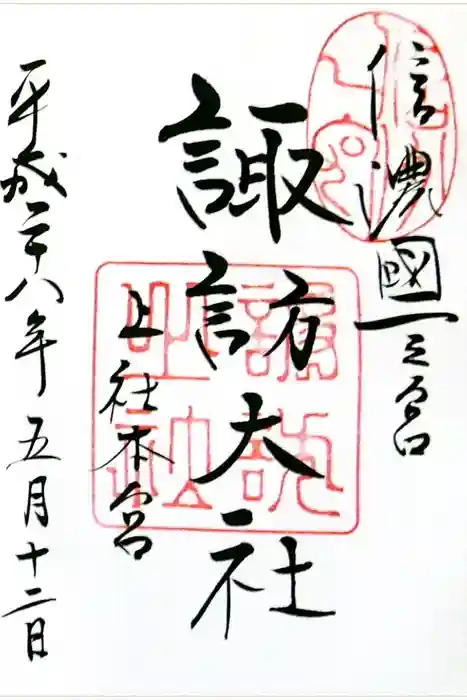 信濃國一之宮
諏訪大社
上社本宮
平成二十八年五月十二日